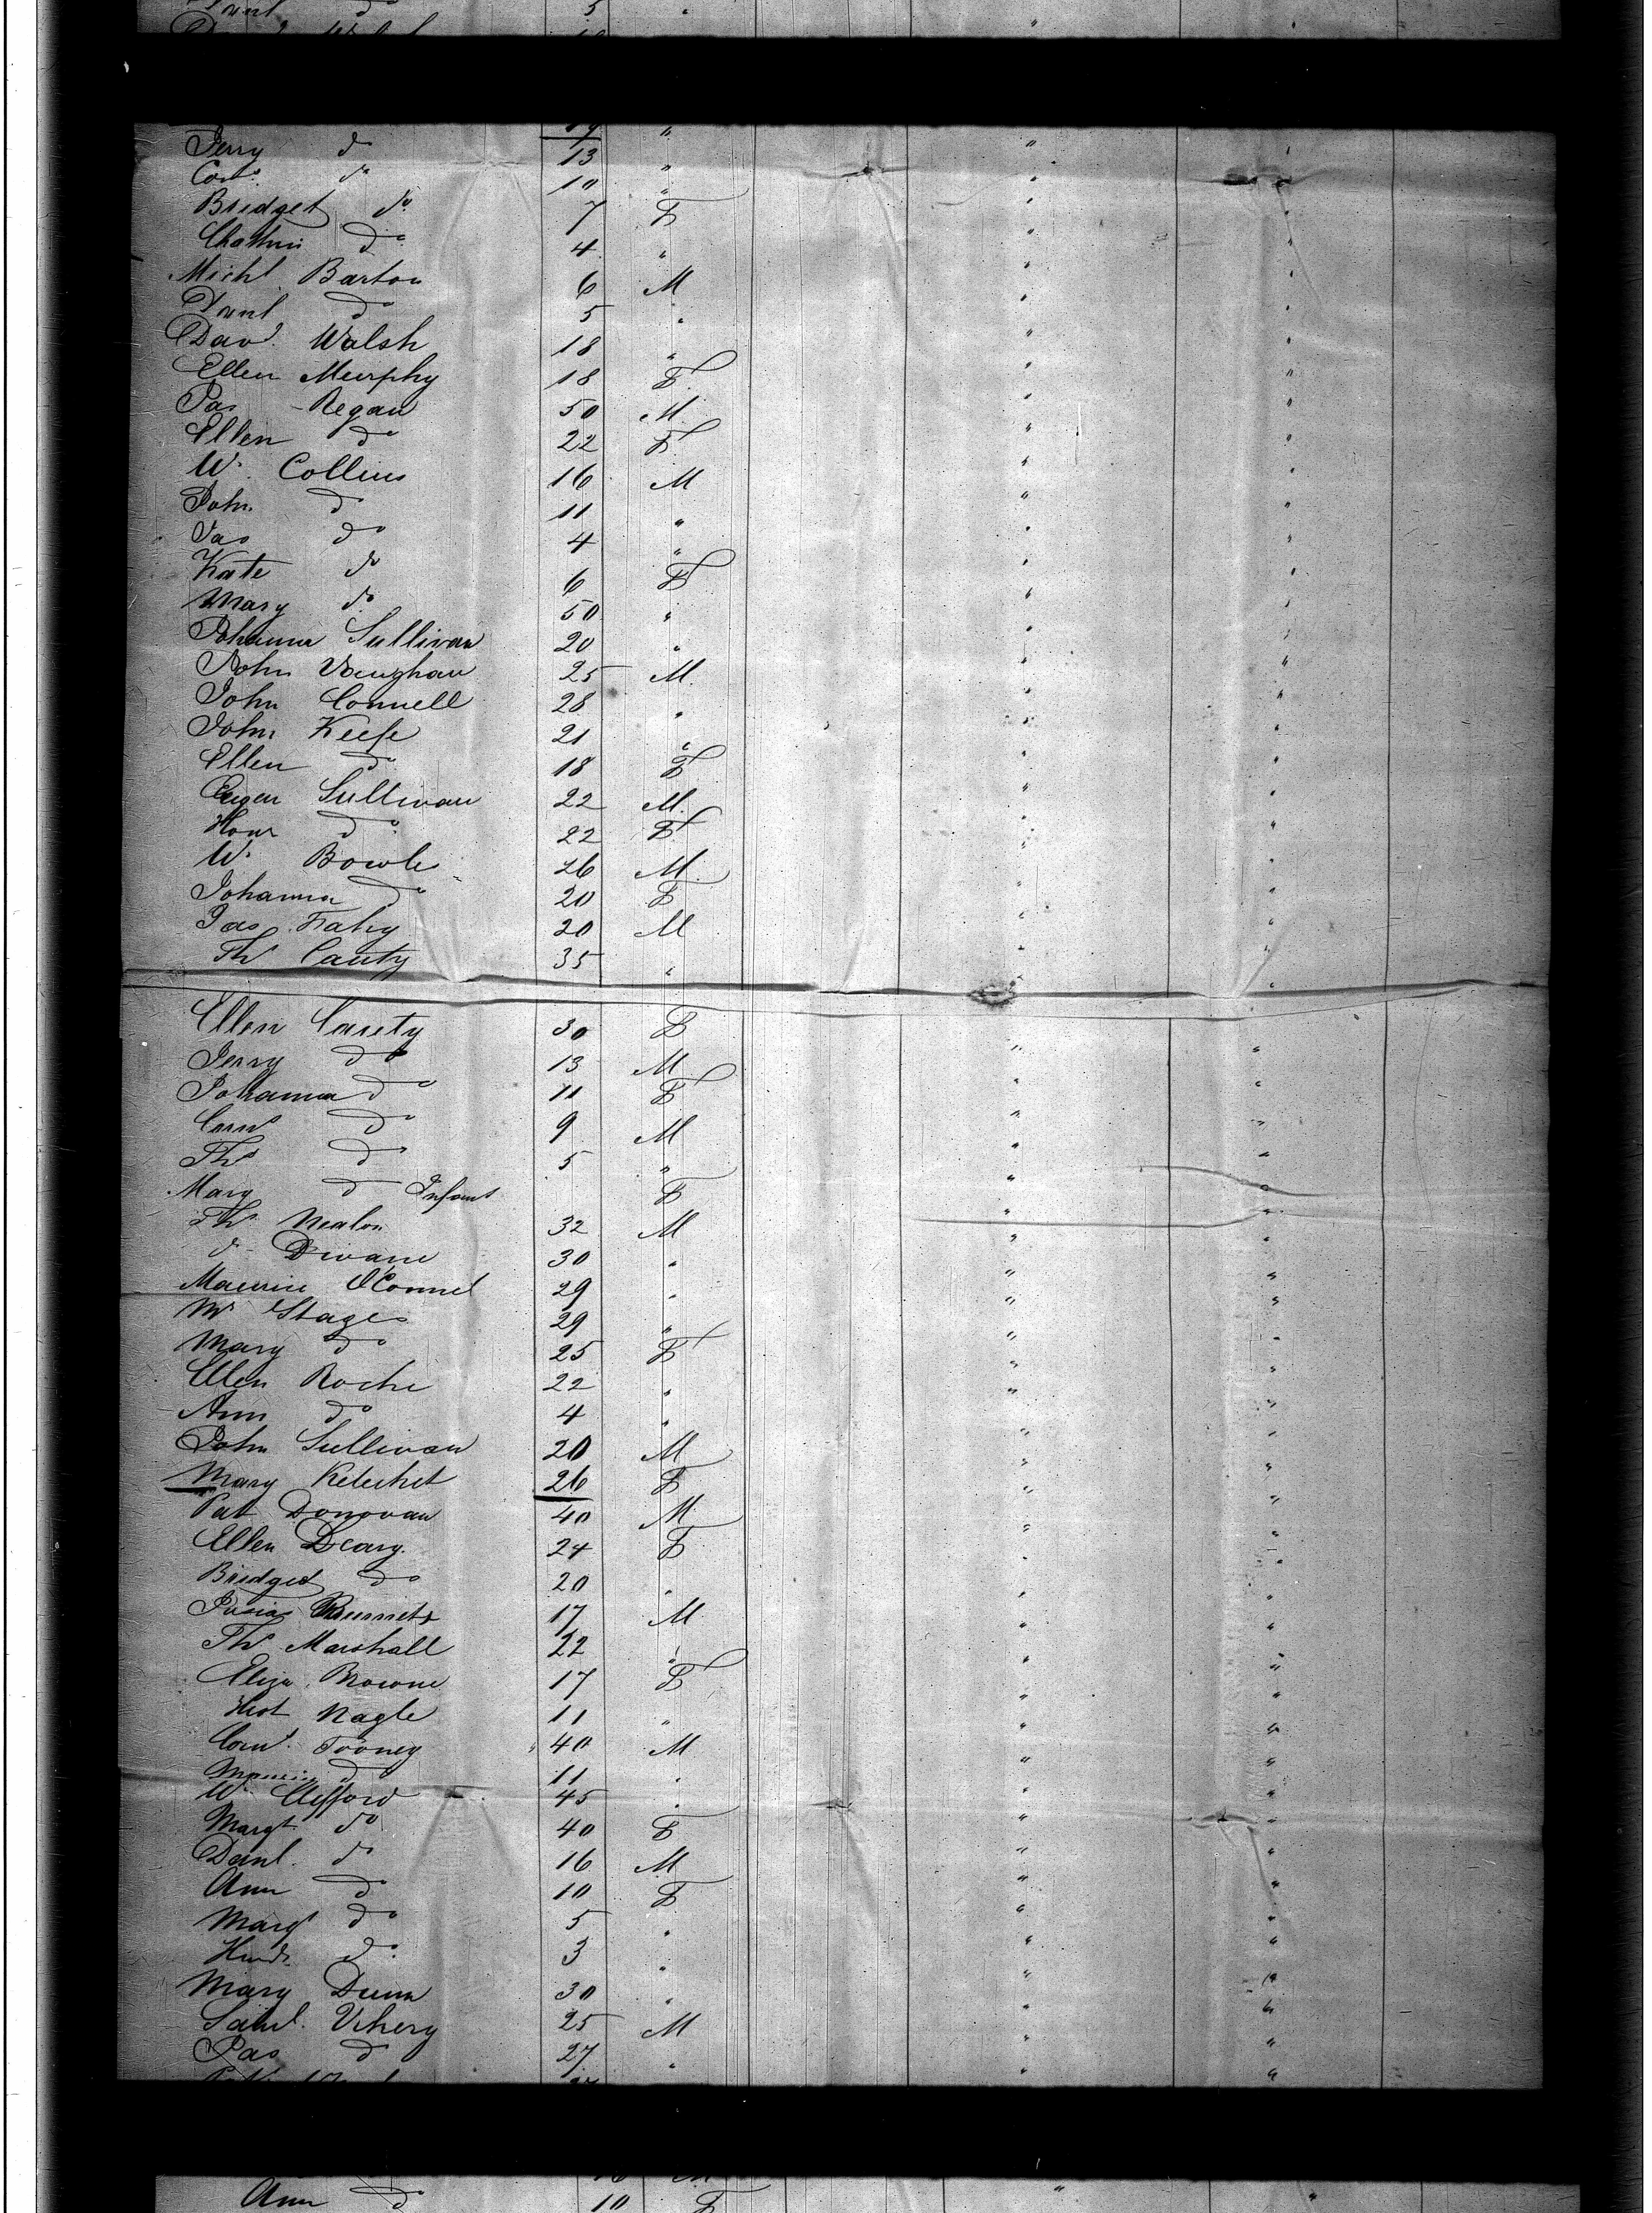 Danl do 5 "
19 "
Jerry do 13 " " "
Corns. do 10 " " "
Bridget do 7 F " "
Do 4 " " "
Michl Barton 6 M " "
Danl Do 5 " " "
Davd. Walsh 18 " " "
Ellen Murphy 18 F " "
Jas Regan 50 M " "
Ellen Do 22 F " "
Wm Collins 16 M " "
John Do 11 " " "
Jas do 4 " " "
Kate do 6 F " "
Mary do 50 " " "
Johanna Sullivan 20 " " "
John Vaughan 25 M " "
John Connell 28 " " "
John Keefe 21 " " "
Ellen Do 18 F " "
Eugen Sullivan 22 M " "
Honr Do 22 F " "
Wm Bowle 26 M " "
Johanna Do 20 F " "
Jas Fahy 20 M " "
Ths Cauty 35 " " "
Ellen Carety 30 F " "
Jerry do 13 M " "
Johanna do 11 F " "
Corns Do 9 M " "
Ths Do 5 " " "
Mary Do Infant F " "
Ths Nealon 32 M " "
do Divane 30 " " "
Maurice O'Connel 29 " " "
Wm Stages 29 " " "
Mary Do 25 F " "
Ellen Roche 22 " " "
Ann Do 4 " " "
John Sullivan 20 M " "
Mary 26 F " "
Pat Donovan 40 M " "
Ellen Deary. 24 F " "
Bridget Do 20 " " "
17 M " "
Ths Marshall 22 " " "
Eliza Browne 17 F " "
Nagle 11 " " "
Corns. Tooney 40 M " "
Do 11 " " "
Wm Clifford 45 " " "
Margt do 40 F " "
Danl. do 16 M " "
Ann Do 10 F " "
Margt Do 5 " " "
Do 3 " " "
Mary Dunn 30 " " "
Saml. Vikery 25 M " "
Jas Do 27 " " "
Ann Do 10 F " "